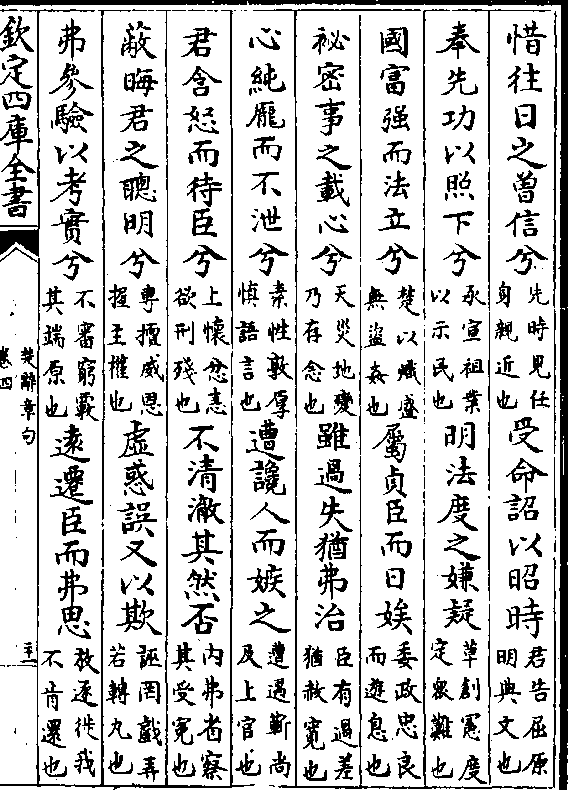 惜往日之曾信兮先時見任身親近也受命詔以昭時君告屈原明典文也
奉先功以照下兮承宣祖業以示民也明法度之嫌疑草創憲度定衆難也
國富强而法立兮楚以熾盛無盜姦也屬貞臣而日娭委政忠良而遊息也
祕密事之載心兮天災地變乃存念也雖過失猶弗治臣有過差猶赦寛也
心純厖而不泄兮素性敦厚慎語言也遭讒人而嫉之遭遇靳尚及上官也
君含怒而待臣兮上懷忿恚欲刑殘也不清澈其然否内弗省察其受寃也
蔽晦君之聰明兮專擅威恩握主權也虛惑誤又以欺誣罔戲弄若轉丸也
弗參驗以考實兮不審窮覈其端原也遠遷臣而弗思放逐徙我不肯還也
欽定四庫全書
楚辭章句
卷四